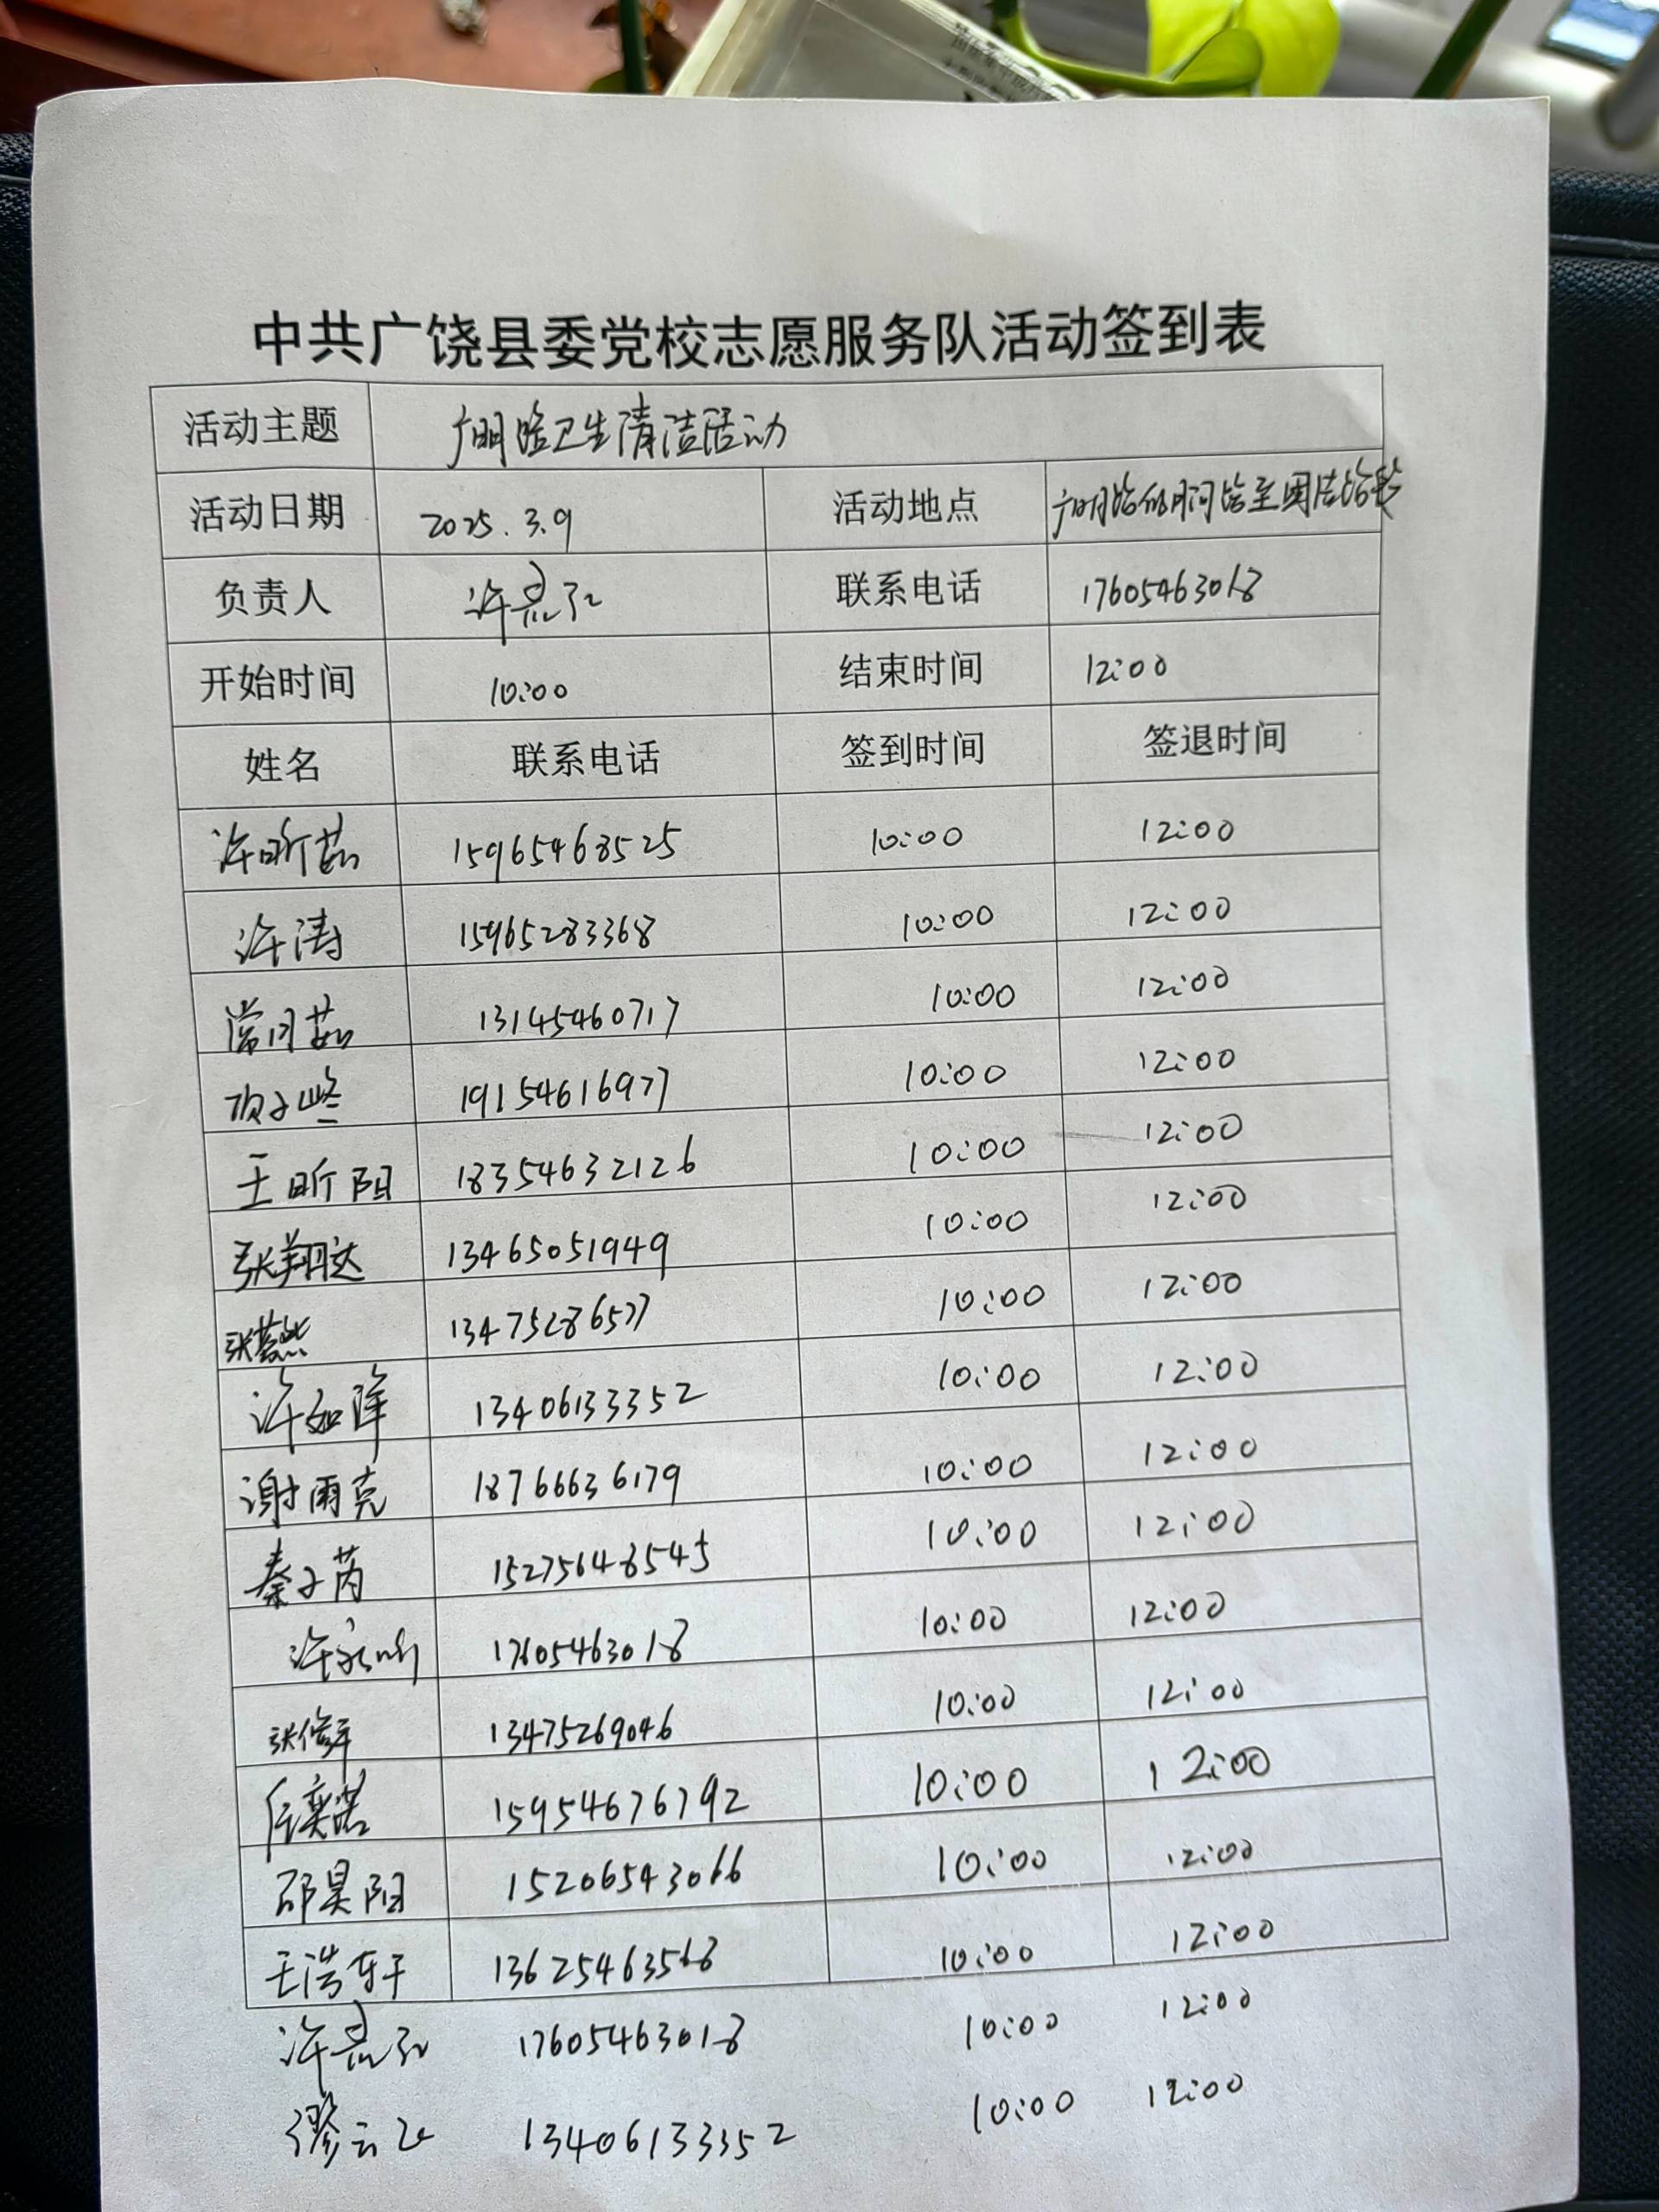 中共广饶县委党校志愿服务队活动签到表
活动主题 广明路卫生清洁活动
活动日期 2025.3.9 活动地点 广明路
负责人 许 联系电话 17605463018
开始时间 10:00 结束时间 12:00
姓名 联系电话 签到时间 签退时间
许昕茹 15965468525 10:00 12:00
许涛 15965283368 10:00 12:00
常月茹 13145460717 10:00 12:00
19154616977 10:00 12:00
王昕阳 18354632126 10:00 12:00
张翔达 13465051949 10:00 12:00
张 13475286577 10:00 12:00
许如 13406133352 10:00 12:00
谢雨克 18766636179 10:00 12:00
秦子芮 15275648545 10:00 12:00
许 17605463018 10:00 12:00
张 13475269046 10:00 12:00
任奕诺 15954676792 10:00 12:00
邵昊阳 15206543066 10:00 12:00
王浩轩 13625463568 10:00 12:00
许 17605463018 10:00 12:00
缪云 13406133352 10:00 12:00